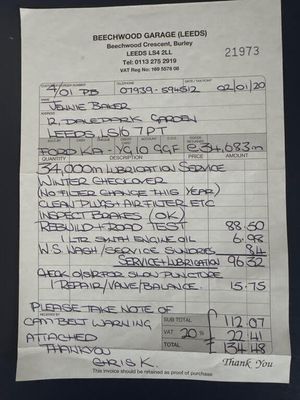 BEECHWOOD GARAGE (LEEDS)
Beechwood Crescent, Burley
LEEDS LS4 2LL
Tel: 0113 275 2919
VAT Reg No: 169 5578 08
21973
07939-594512
02/01/20
NAME
JENNIE BAKER
ADDRESS
12, DALEPARK GARDEN
LEEDS LS16 7PT
FORD KA - YG10 GGF @ 34,683m
QUANTITY DESCRIPTION PRICE AMOUNT
34,000m LUBRICATION SERVICE
WINTER CHECKOVER
(NO FILTER CHANGE THIS YEAR)
CLEAN PLUGS + AIR FILTER ETC
INSPECT BRAKES (OK)
REBUILD + ROAD TEST 88.50
1 LTR SYNTH ENGINE OIL 6.98
W.S WASH/SERVICE SUNDRIES 84
SERVICE + LUBRICATION 96.32
CHECK O/S/R FOR SLOW PUNCTURE
1 REPAIR/VALVE/BALANCE. 15.75
PLEASE TAKE NOTE OF
CAM BELT WARNING
ATTACHED
THANKYOU
CHRIS K.
SUB TOTAL £ 112.07
VAT 20% 22.41
TOTAL £ 134.48
Thank You
This invoice should be retained as proof of purchase